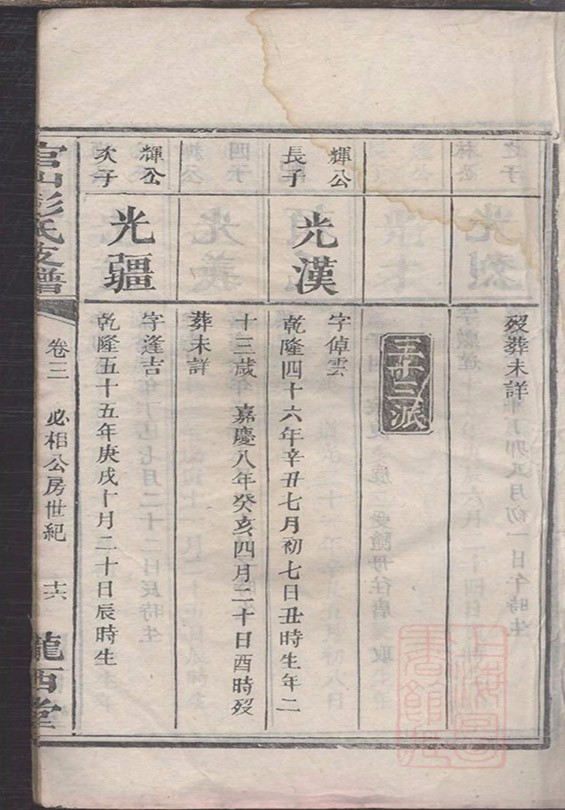 歿葬未詳
三十三派
輝公
長子
光漢
字倬雲
乾隆四十六年辛丑七月初七日丑時生年二
十三歲 嘉慶八年癸亥四月二十日酉時歿
葬未詳
輝公
次子
光疆
字逢吉
乾隆五十五年庚戌十月二十日辰時生
官山彭氏支譜
卷三
必相公房世紀
十六
隴西堂